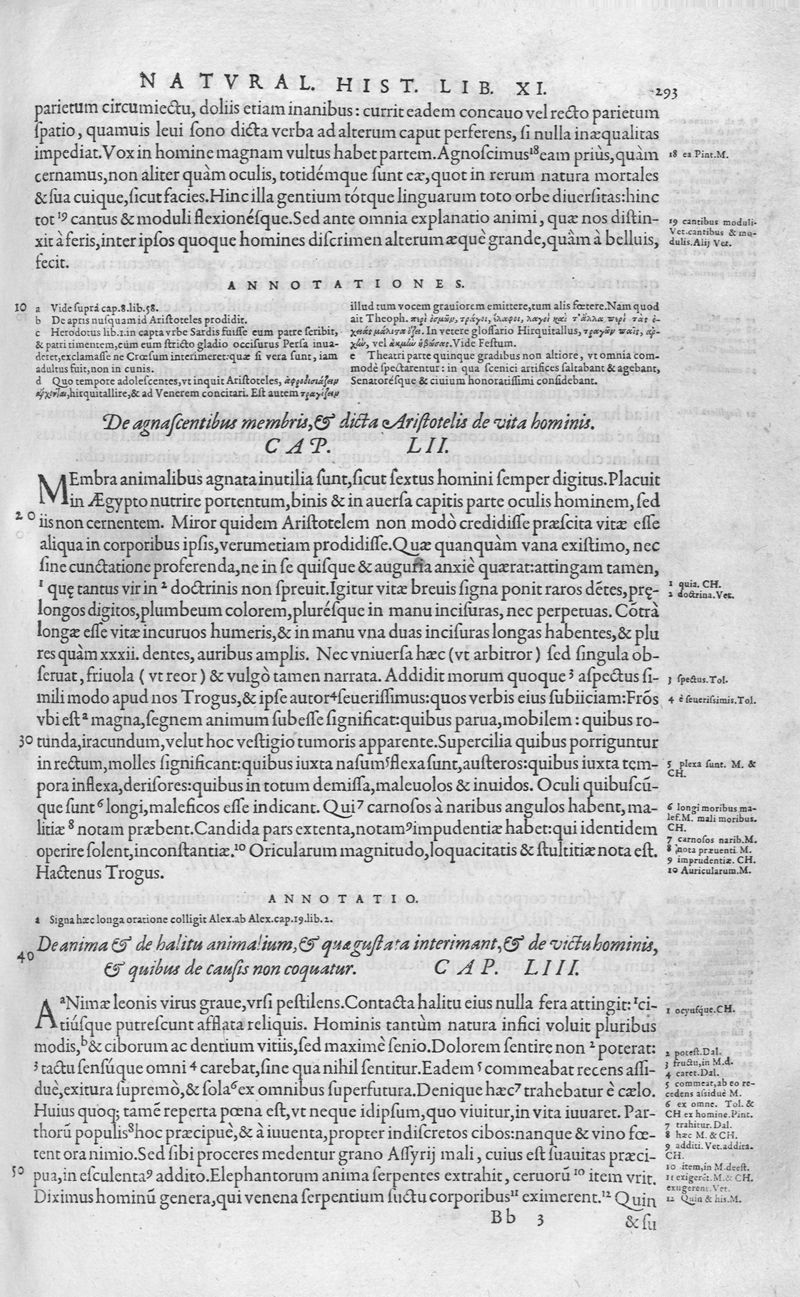 NATVRAL. HIST. LIB. XI. 293
parietum circumiectu, doliis etiam inanibus: currit eadem concauo vel recto parietum
ſpatio, quamuis leui ſono dicta verba ad alterum caput perferens, ſi nulla inæqualitas
impediat. Vox in homine magnam vultus habet partem. Agnoſcimus¹⁸ eam priùs, quàm
cernamus, non aliter quàm oculis, totidémque ſunt eæ, quot in rerum natura mortales
& ſua cuique, ſicut facies. Hinc illa gentium tótque linguarum toto orbe diuerſitas: hinc
tot ¹⁹ cantus & moduli flexionéſque. Sed ante omnia explanatio animi, quæ nos diſtin-
xit à feris, inter ipſos quoque homines diſcrimen alterum æquè grande, quàm à belluis,
fecit.
18 ea Pint. M.
19 cantibus moduli.
Vet. cantibus & mo-
dulis. Alij Vet.
ANNOTATIONES.
10 a Vide ſuprà cap. 8. lib. 58.
b De apris nuſquam id Ariſtoteles prodidit.
c Herodotus lib. 1. in capta vrbe Sardis fuiſſe eum patre ſcribit,
& patri timentem, cùm eum ſtricto gladio occiſurus Perſa inua-
deret, exclamaſſe ne Crœſum interimeret: quæ ſi vera ſunt, iam
adultus fuit, non in cunis.
d Quo tempore adoleſcentes, vt inquit Ariſtoteles, ἀφροδισιάζειν
ἄρχονται, hirquitallire, & ad Venerem concitari. Eſt autem τραγίζειν
illud tum vocem grauiorem emittere, tum alis fœtere. Nam quod
ait Theoph.
In vetere gloſſario Hirquitallus,
vel Vide Feſtum.
e Theatri parte quinque gradibus non altiore, vt omnia com-
modè ſpectarentur: in qua ſcenici artifices ſaltabant & agebant,
Senatoréſque & ciuium honoratiſſimi conſidebant.
De agnaſcentibus membris, & dicta Ariſtotelis de vita hominis.
CAP. LII.
MEmbra animalibus agnata inutilia ſunt, ſicut ſextus homini ſemper digitus. Placuit
in Ægypto nutrire portentum, binis & in auerſa capitis parte oculis hominem, ſed
20 iis non cernentem. Miror quidem Ariſtotelem non modò credidiſſe præſcita vitæ eſſe
aliqua in corporibus ipſis, verumetiam prodidiſſe. Quæ quanquàm vana exiſtimo, nec
ſine cunctatione proferenda, ne in ſe quiſque & auguria anxiè quærat: attingam tamen,
¹ quę tantus vir in ² doctrinis non ſpreuit. Igitur vitæ breuis ſigna ponit raros dētes, prę-
longos digitos, plumbeum colorem, pluréſque in manu inciſuras, nec perpetuas. Cōtrà
longæ eſſe vitæ incuruos humeris, & in manu vna duas inciſuras longas habentes, & plu
res quàm xxxii. dentes, auribus amplis. Nec vniuerſa hæc (vt arbitror) ſed ſingula ob-
ſeruat, friuola (vt reor) & vulgò tamen narrata. Addidit morum quoque ³ aſpectus ſi-
mili modo apud nos Trogus, & ipſe autor ⁴ ſeueriſſimus: quos verbis eius ſubiiciam: Frōs
vbi eſt ᵃ magna, ſegnem animum ſubeſſe ſignificat: quibus parua, mobilem: quibus ro-
30 tunda, iracundum, velut hoc veſtigio tumoris apparente. Supercilia quibus porriguntur
in rectum, molles ſignificant: quibus iuxta naſum ⁵ flexa ſunt, auſteros: quibus iuxta tem-
pora inflexa, deriſores: quibus in totum demiſſa, maleuolos & inuidos. Oculi quibuſcū-
que ſunt ⁶ longi, maleficos eſſe indicant. Qui ⁷ carnoſos à naribus angulos habent, ma-
litiæ ⁸ notam præbent. Candida pars extenta, notam ⁹ impudentiæ habet: qui identidem
operire ſolent, inconſtantiæ. ¹⁰ Oricularum magnitudo, loquacitatis & ſtultitiæ nota eſt.
Hactenus Trogus.
1 quia. CH.
2 doctrina. Vet.
3 ſpectus. Tol.
4 è ſeueriſsimis. Tol.
5 plexa ſunt. M. &
CH.
6 longi moribus ma-
lef. M. mali moribus.
CH.
7 carnoſos narib. M.
8 nota præuenti. M.
9 imprudentiæ. CH.
10 Auricularum. M.
ANNOTATIO.
a Signa hæc longa oratione colligit Alex. ab Alex. cap. 19. lib. 2.
De anima & de halitu animalium, & quæ guſtata interimant, & de victu hominis,
40 & quibus de cauſis non coquatur. CAP. LIII.
AᵃNimæ leonis virus graue, vrſi peſtilens. Contacta halitu eius nulla fera attingit: ¹ ci-
tiúſque putreſcunt afflata reliquis. Hominis tantùm natura infici voluit pluribus
modis, ᵇ & ciborum ac dentium vitiis, ſed maximè ſenio. Dolorem ſentire non ² poterat:
³ tactu ſenſúque omni ⁴ carebat, ſine qua nihil ſentitur. Eadem ⁵ commeabat recens aſſi-
duè, exitura ſupremò, & ſola ⁶ ex omnibus ſuperfutura. Denique hæc ⁷ trahebatur è cælo.
Huius quoq; tamē reperta pœna eſt, vt neque id ipſum, quo viuitur, in vita iuuaret. Par-
thorū populis ⁸ hoc præcipuè, & à iuuenta, propter indiſcretos cibos: nanque & vino fœ-
tent ora nimio. Sed ſibi proceres medentur grano Aſſyrij mali, cuius eſt ſuauitas præci-
50 pua, in eſculenta ⁹ addito. Elephantorum anima ſerpentes extrahit, ceruorū ¹⁰ item vrit.
Diximus hominū genera, qui venena ſerpentium ſuctu corporibus ¹¹ eximerent. ¹² Quin
1 ocyuſque. CH.
2 poteſt. Dal.
3 fructu, in M. d.
4 caret. Dal.
5 commeat, ab eo re-
cedens aſsiduè M.
6 ex omne. Tol. &
CH ex homine. Pint.
7 trahitur. Dal.
8 hæc M. & CH.
9 additi. Vet. addita.
CH.
10 item, in M. deeſt.
11 exigerēt. M. & CH.
exugerent. Vet.
12 Quin & his. M.
Bb 3 & ſu